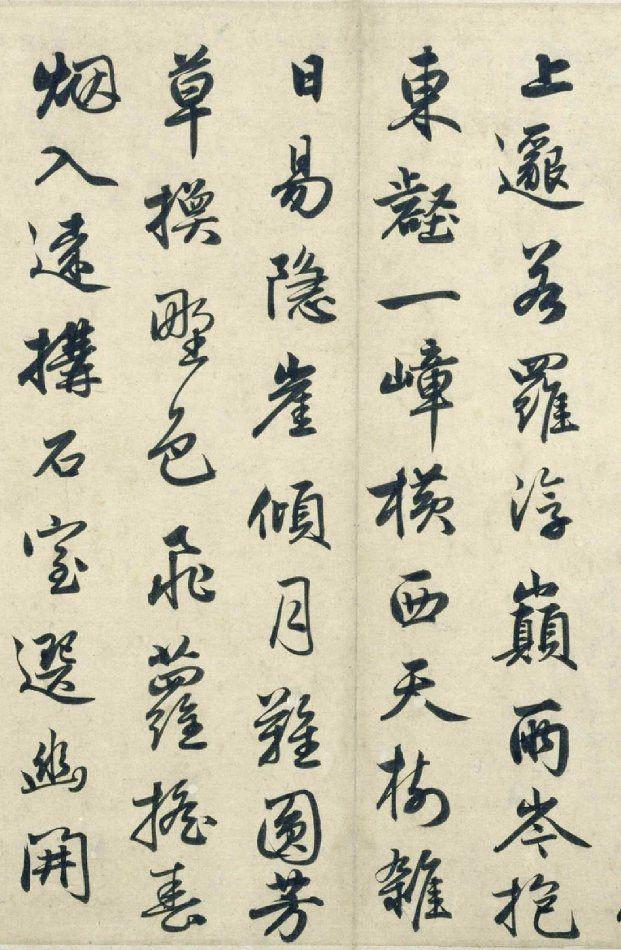 上邈若羅浮巔兩岑抱
東壑一嶂橫西天樹雜
日易隱崖傾月難圓芳
草換野色飛蘿搖春
烟入遠搆石室選幽開